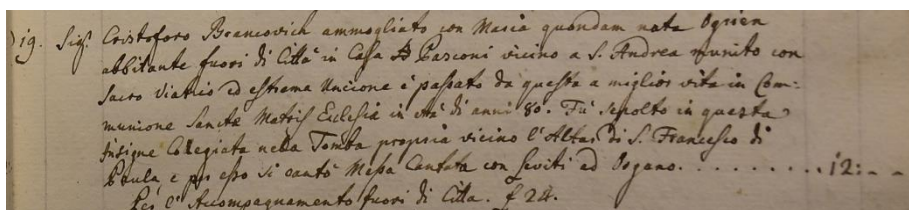 19. Sigr. Cristoforo Brancovich ammogliato con Maria quondam nata Ognien
abbitante fuori di Città in Casa Pasconi vicino a S. Andrea munito con
sacro Viatico ed estrema Unzione è passato da questa a miglior vita in Com:
munione Sanctæ Matris Eclesiæ in età di anni 80. Fù sepolto in questa
insigne Colegiata nella Tomba propria vicino l'Altar di S. Francesco di
Paula e per esso si cantò Messa Cantata con Leviti ad Organo. . . . . . . . . . 12: - -
Per l'Accompagnamento fuori di Citta. f 24.